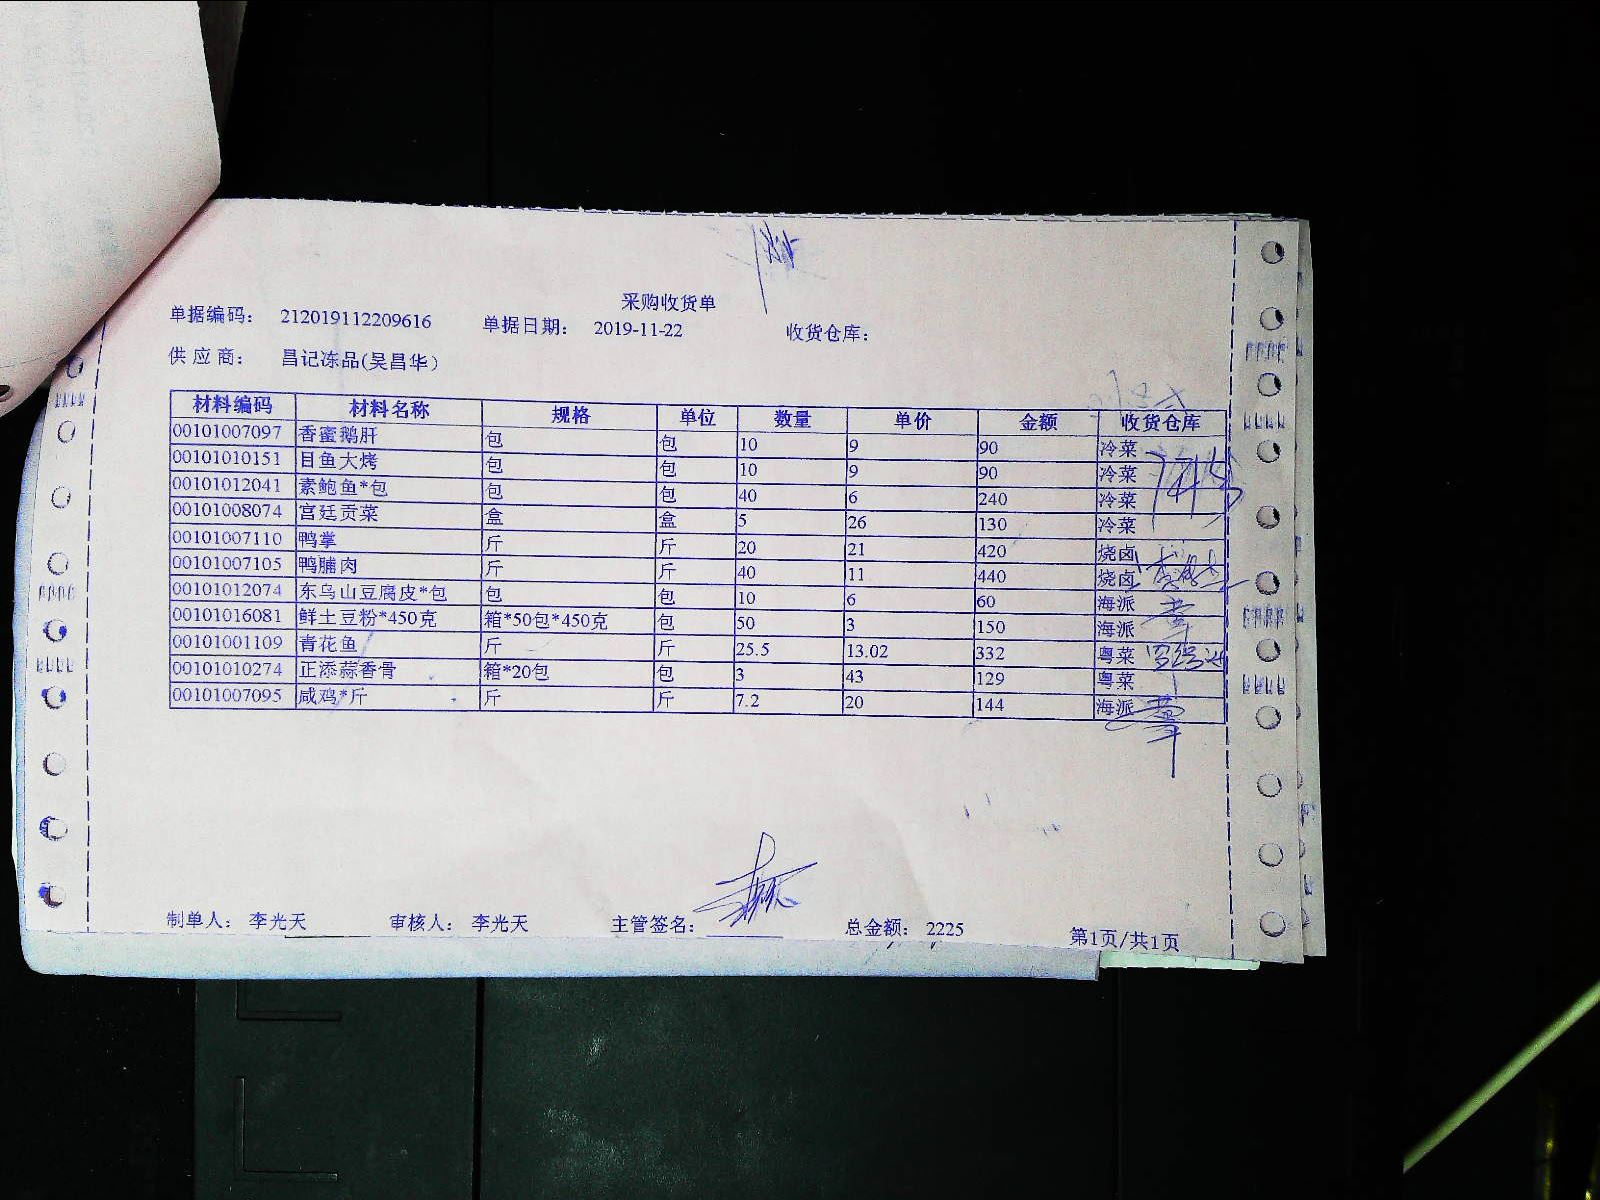 采购收货单
单据编码： 212019112209616 单据日期： 2019-11-22 收货仓库：
供应商： 昌记冻品(吴昌华）
材料编码 材料名称 规格 单位 数量 单价 金额 收货仓库
00101007097 香蜜鹅肝 包 包 10 9 90 冷菜
00101010151 目鱼大烤 包 包 10 9 90 冷菜
00101012041 素鲍鱼*包 包 包 40 6 240 冷菜
00101008074 宫廷贡菜 盒 盒 5 26 130 冷菜
00101007110 鸭掌 斤 斤 20 21 420 烧卤
00101007105 鸭脯肉 斤 斤 40 11 440 烧卤
00101012074 东乌山豆腐皮*包 包 包 10 6 60 海派
00101016081 鲜土豆粉*450克 箱*50包*450克 包 50 3 150 海派
00101001109 青花鱼 斤 斤 25.5 13.02 332 粤菜
00101010274 正添蒜香骨 箱*20包 包 3 43 129 粤菜
00101007095 咸鸡*斤 斤 斤 7.2 20 144 海派
制单人： 李光天 审核人： 李光天 主管签名： 总金额： 2225 第1页/共1页